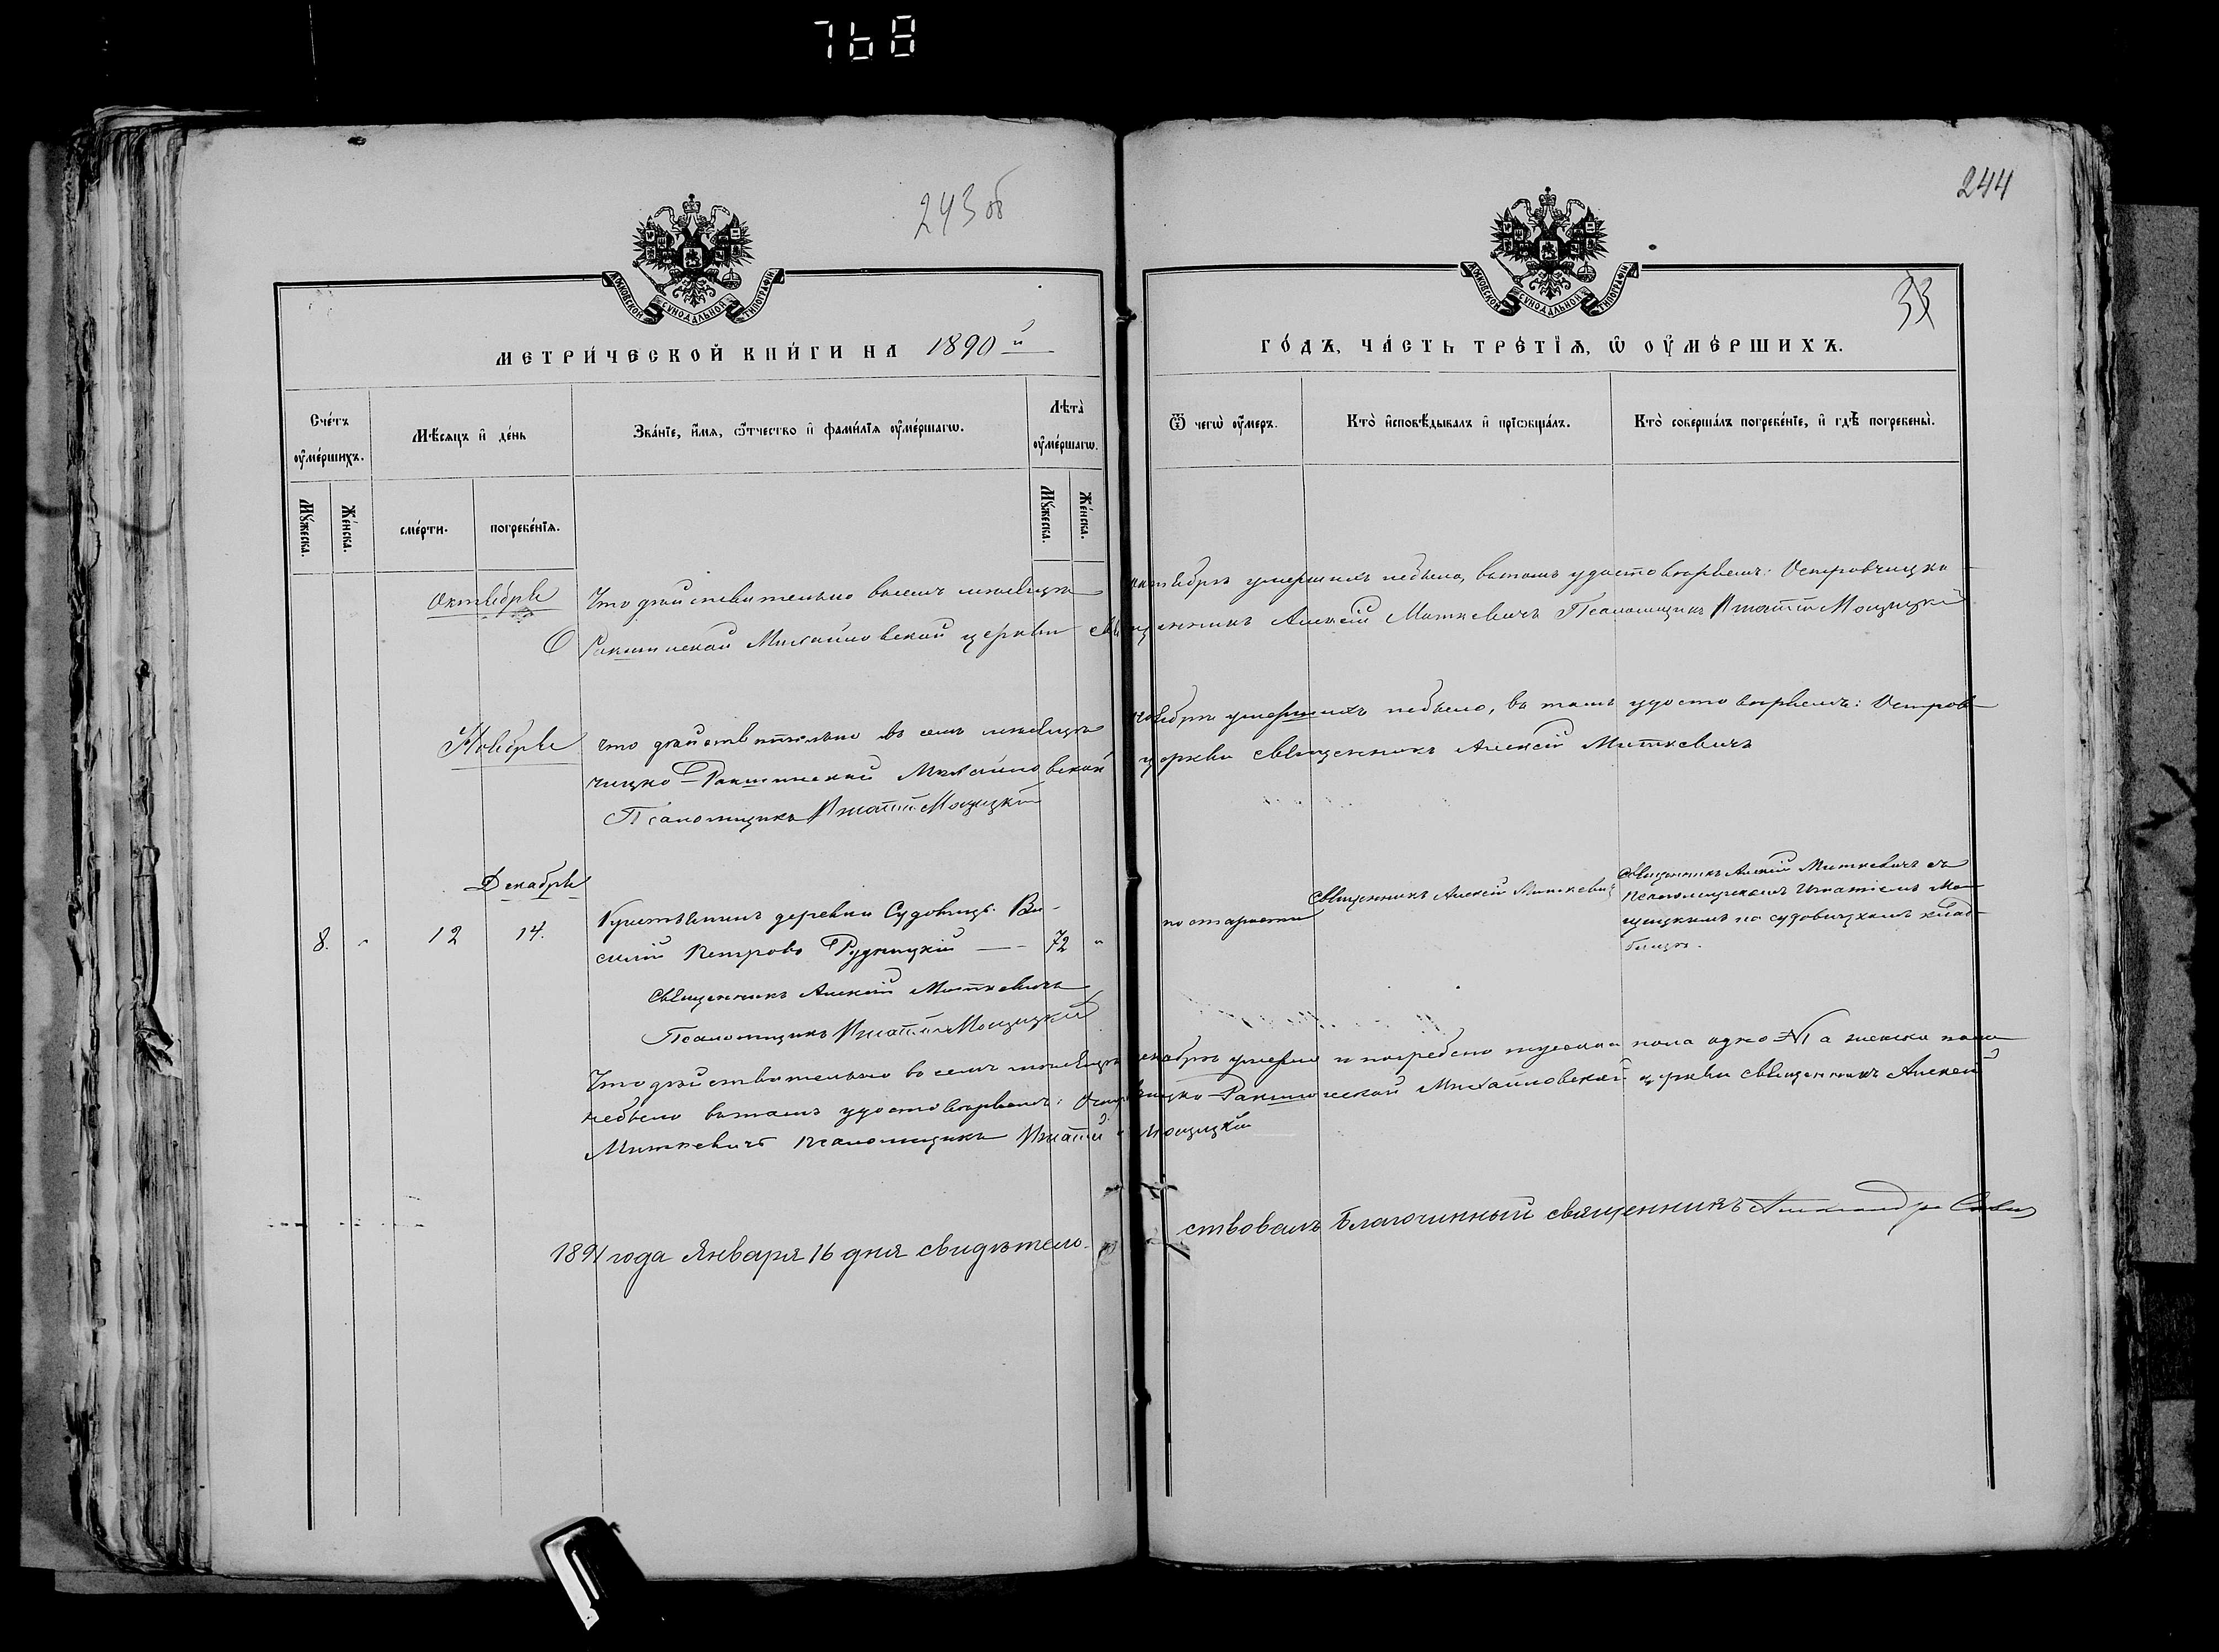 768
243 об
244
33
МОСКОВСКОЙ СѴНОДАЛЬНОЙ ТИПОГРАФІИ
МОСКОВСКОЙ СѴНОДАЛЬНОЙ ТИПОГРАФІИ
МЕТРИ́ЧЕСКОЙ КНИ́ГИ НА 1890 й
ГО́ДЪ, ЧА́СТЬ ТРЕ́ТІѦ, Ѡ ОУ҆МЕ́РШИХЪ.
Сче́тъ оу҆ме́ршихъ.
Мѣ́сяцъ и҆ де́нь
Зва́нїе, и҆́мѧ, ѻ҆́тчество и҆ фами́лїѧ оу҆ме́ршагѡ.
Лѣта̀ оу҆ме́ршагѡ.
Ѿ чегѡ̀ оу҆́меръ.
Кто̀ и҆сповѣ́дывалъ и҆ прїѡбща́лъ.
Кто̀ соверша́лъ погребе́нїе, и҆ гдѣ̀ погребены̀.
Мꙋ́жеска.
Же́нска.
сме́рти.
погребе́нїѧ.
Мꙋ́жеска.
Же́нска.
Октября
Что дѣйствительно въ семъ мѣсяцѣ октябрѣ умершихъ небыло, въ томъ удостовѣряемъ: Островчицко-
Ракшинской Михайловской церкви священникъ Алексій Миткевичъ Псаломщикъ Игнатій Мощицкій
Ноября
Что дѣйствительно въ семъ мѣсяцѣ ноябрѣ умершихъ небыло, въ томъ удостовѣряемъ: Островчицко-Ракшинской Михайловской церкви священникъ Алексій Миткевичъ
Псаломщикъ Игнатій Мощицкій
Декабря
8. " 12 14. Крестьянинъ деревни Судовицъ. Ва-
силій Петровъ Рудницкій — 72 "
по старости
Священникъ Алексій Миткевичъ
Священникъ Алексій Миткевичъ съ
псаломщикомъ Игнатіемъ Мо-
щицкимъ на судовицкомъ клад-
бищѣ.
Священникъ Алексій Миткевичъ
Псаломщикъ Игнатій Мощицкій
Что дѣйствительно въ семъ мѣсяцѣ декабрѣ умерло и погребено мужеска пола одно №1 а женска пола
небыло въ томъ удостовѣряемъ: Островчицко-Ракшинской Михайловской церкви священникъ Алексій
Миткевичъ псаломщикъ Игнатій Мощицкій
1891 года Января 16 дня свидѣтель-
ствовалъ Благочинный священникъ Александръ